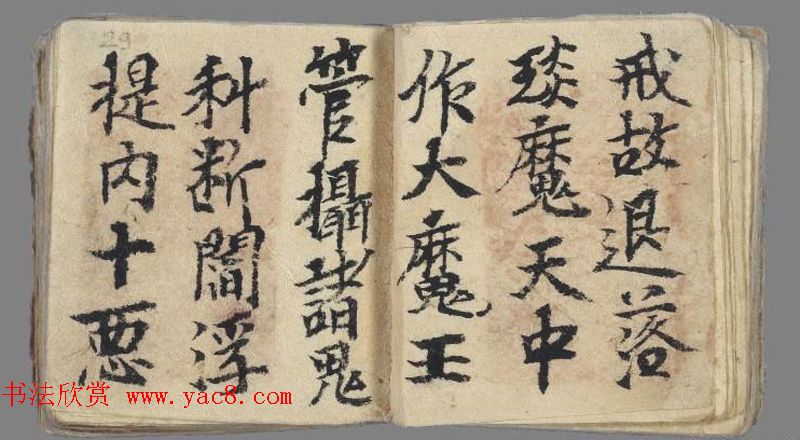 戒故退落
琰魔天中
作大魔王
管攝諸鬼
科断閻浮
提内十悪
29
书法欣赏 www.yac8.com